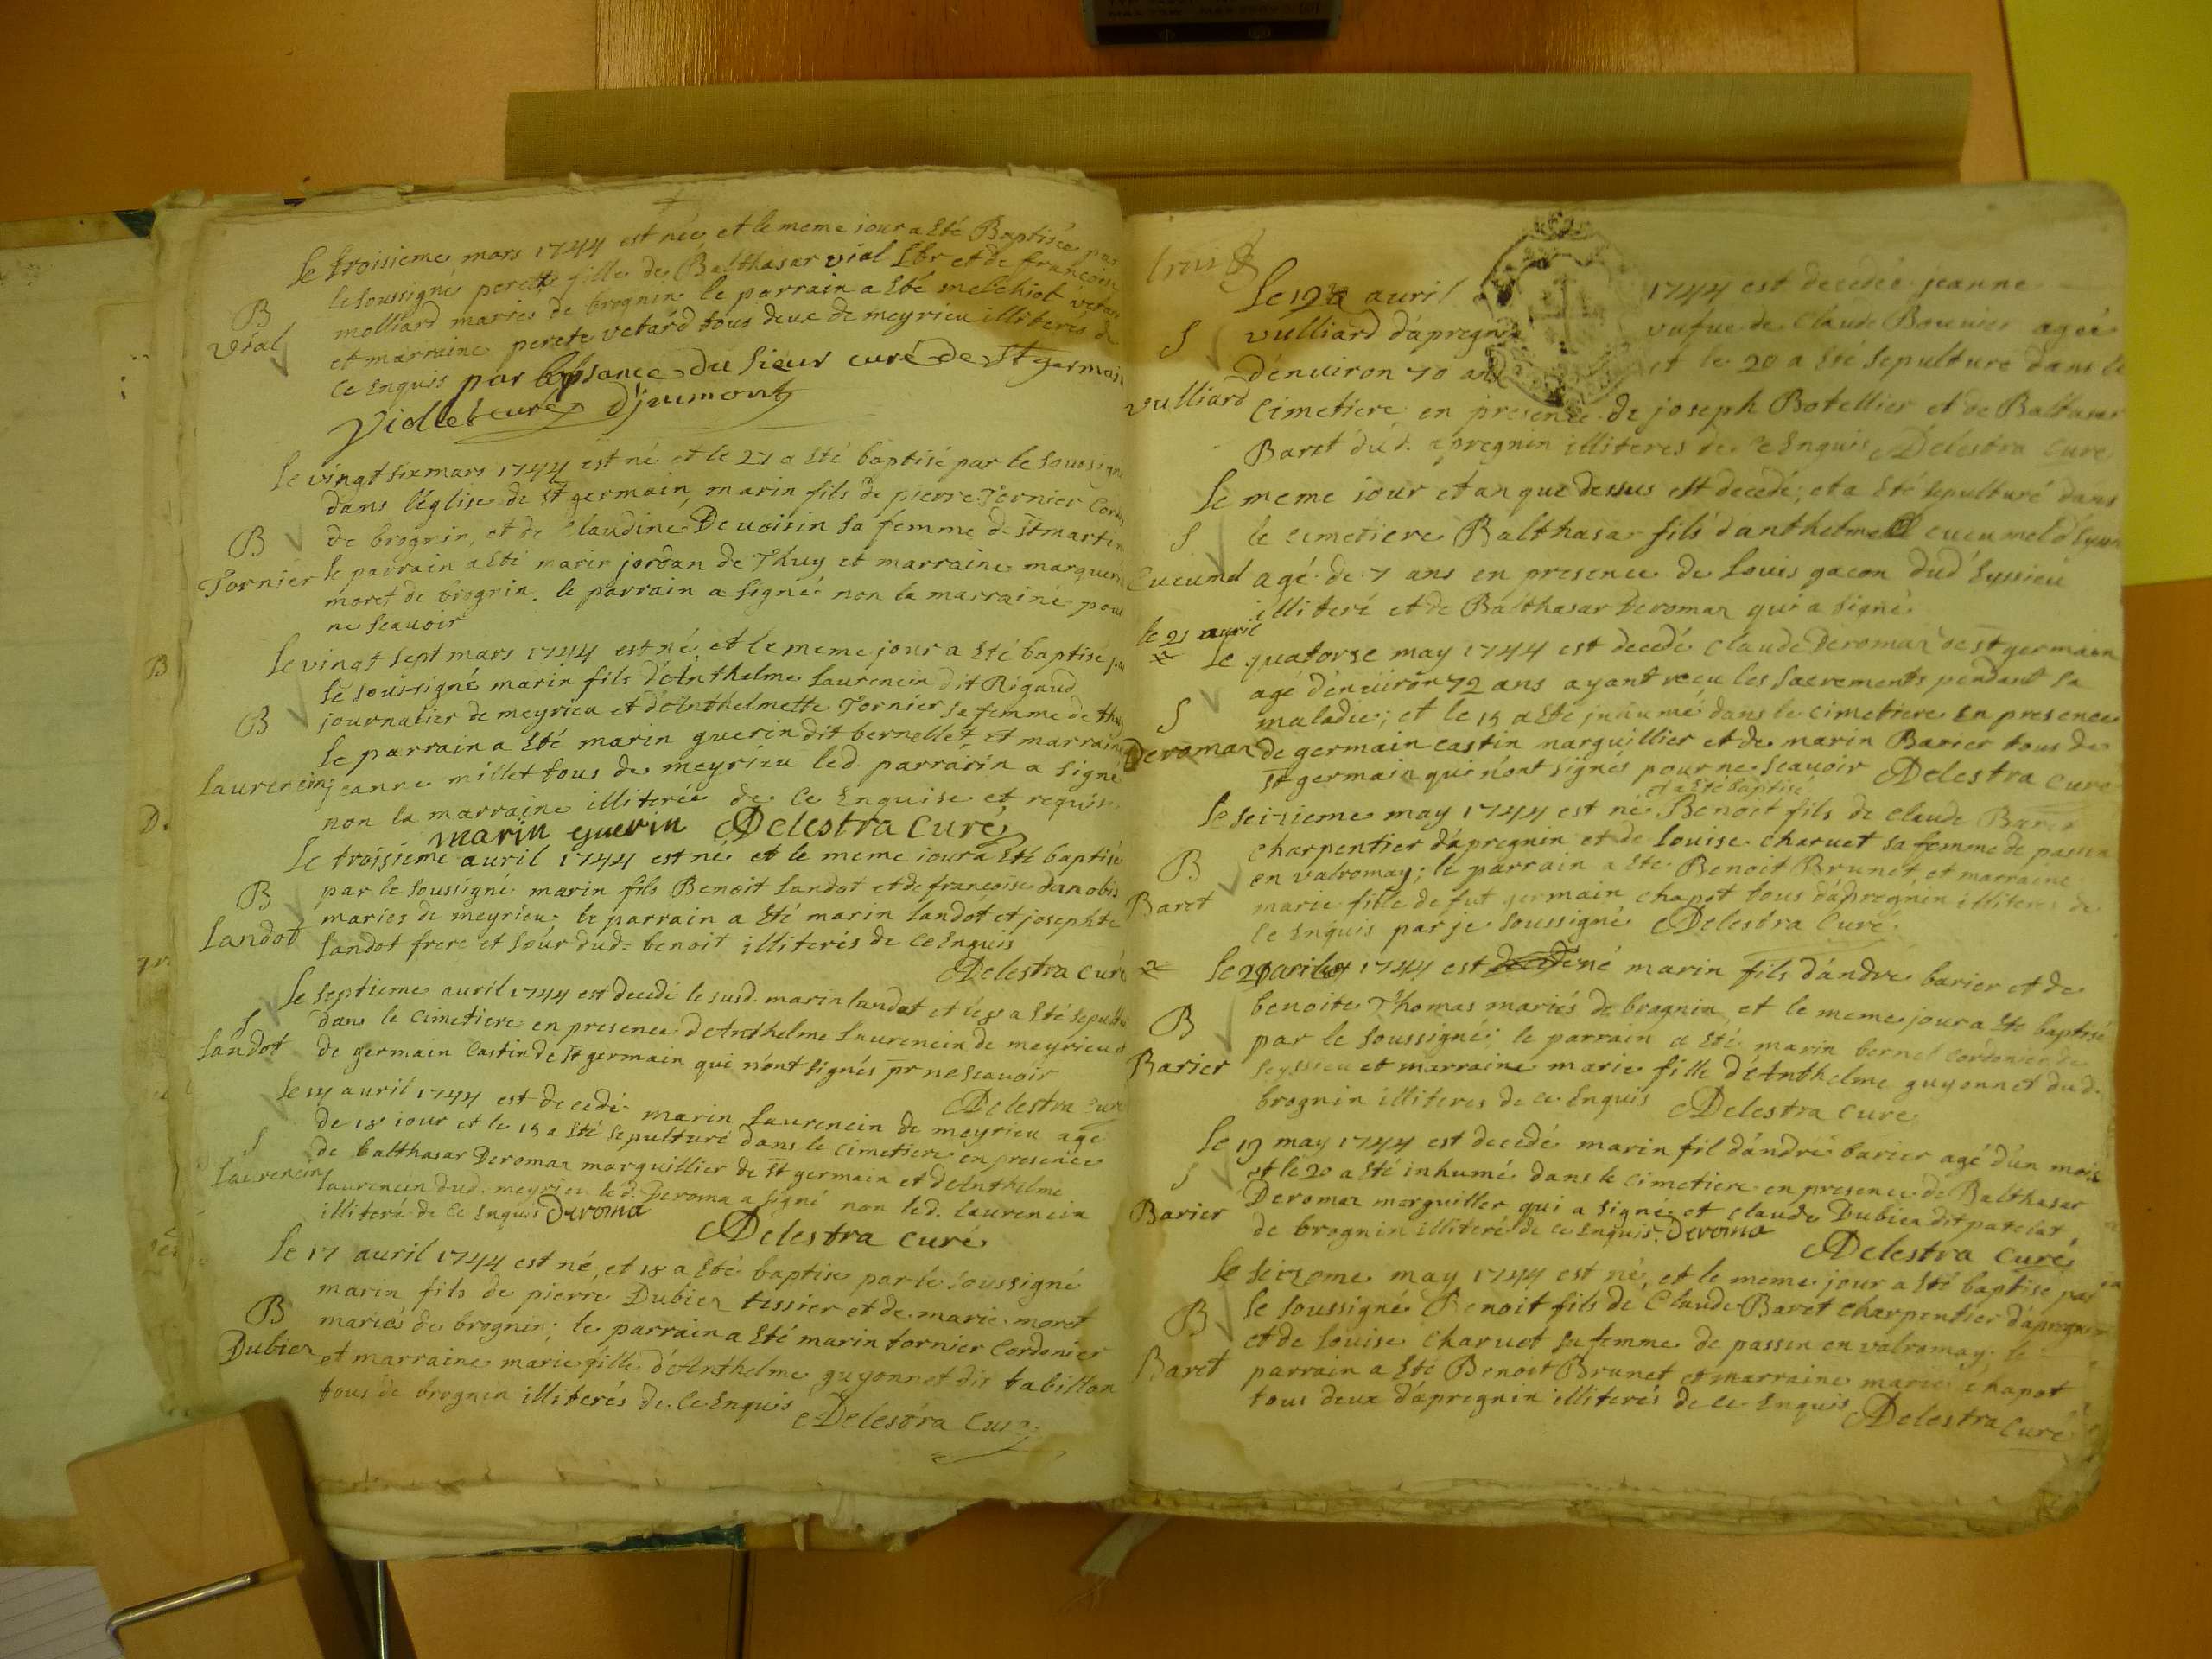 Le troisieme mars 1744 est neé et le meme iour a eté Baptiseé par
le soussigné perette fille de Balthasar vial Lbr et de françoise
B
molliard mariés de brognin le parrain a eté melchiol vetar
vial
et marraine perete vetard tous deux de meyrieu illiterés de
ce Enquis par labsance du sieur curé de St germain
Violet curé D'jeumont
Le vingt six mars 1744 est né et le 27 a eté baptisé par le soussigné
dans léglise de St germain, marin fils de pierre Tornier Cord
B
de brognin, et de Claudine Devoisin sa femme de St martin
Tornier
le parrain a eté marin jordan de Thuy et marraine marguer
moret de brognin. le parrain a signé non la marraine pour
ne scavoir
Le vingt sept mars 1744 est né et le meme jour a eté baptisé par
le sous-signé marin fils d'Anthelme Laurencin dit Rigaud
B
journalier de meyrieu et d'Anthelmette Tornier sa femme de thuy
le parrain a eté marin guerin dit bernellet et marraine
Laurencin
jeanne millet tous de meyrieu led. parrain a signé
non la marraine illitereé de ce Enquise et requise
marin guerin Delestra Curé
Le troisieme auril 1744 est né et le meme iour a eté baptisé
B
par le soussigné marin fils Benoit Landot et de françoise danobis
mariés de meyrieu le parrain a eté marin landot et josephte
Landot
landot frere et sour dud. benoit illiterés de ce Enquis
Delestra Curé
Le septieme auril 1744 est decedé le susd. marin landot et le 8 a eté sepultu
S
dans le cimetiere en presence d'Anthelme Laurencin de meyrieu et
Landot
de germain Castin de St germain qui n'ont signés pr ne scauoir
Delestra Curé
Le 14 auril 1744 est decedé marin Laurencin de meyrieu agé
de 18 iour et le 15 a eté sepulturé dans le cimetiere en presence
S
de balthasar Deromaz marguillier de St germain et d'Anthelme
Laurencin
laurencin dud. meyrieu le d. Deroma a signé non led. laurencin
illiteré de ce Enquis Deroma
Delestra Curé
Le 17 auril 1744 est né, et 18 a eté baptise par le soussigné
marin fils de pierre Dubiez tessier et de marie moret
B
mariés de brognin; le parrain a eté marin tornier Cordonier
Dubiez
et marraine marie fille d'Anthelme guyonnet dit tabillon
tous de brognin illiterés de ce Enquis Delestra Curé
Le 19 auril 1744 est decedeé jeanne
S
vulliard d'apregnin vufue de Claude Bouuier ageé
d'enuiron 70 ans et le 20 a eté sepulture dans le
vulliard
Cimetiere en presence de joseph Botellier et de Baltasar
Baret dud. apregnin illiteres de ce Enquis Delestra Curé
Le meme iour et an que dessus est decedé, et a eté sepulturé dans
S
le cimetiere Balthasar fils d'anthelme cucumel
Cucumel
agé de 7 ans en presence de Louis gacon dud Eyssieu
illiteré et de Balthasar Deromaz qui a signé
le 21 auril
Le quatorze may 1744 est decedé Claude Deromaz de St germain
agé d'enuiron 72 ans ayant recu les sacrements pendant sa
S
maladie; et le 15 a eté inhumé dans le cimetiere en presence
Deromaz
de germain castin narguillier et de marin Barier tous de
St germain qui n'ont signés pour ne scauoir Delestra Curé
et a eté baptisé
Le seizieme may 1744 est né Benoit fils de claude Baret
charpentier d'apregnin et de Louise charuet sa femme de passin
B
en valromay; le parrain a eté Benoit Brunet et marraine
Baret
marie fille de fut germain chapot tous d'apregnin illiteres de
ce Enquis par je soussigné Delestra Curé
Le 21 1744 est né marin fils d'andre barier et de
benoite Thomas mariés de brognin, et le meme jour a eté baptisé
B
par le soussigné; le parrain a eté marin bernel cordonier de
Barier
seyssieu et marraine marie fille d'Anthelme guyonnet dud.
brognin illiteres de ce Enquis Delestra Curé
Le 19 may 1744 est decedé marin fil d'andre barier agé d'un mois
S
et le 20 a eté inhumé dans le cimetiere en presence de Balthasar
Deromaz marguiller qui a signé et claude Dubiez dit patelat
Barier
de brognin illiteré de ce Enquis. Deroma
Delestra Curé
Le seizeme may 1744 est né, et le meme jour a eté baptise par
B
le soussigné Benoit fils de Claude Baret charpentier d'apregnin
et de Louise Charuet sa femme de passin en valromay; le
Baret
parrain a eté Benoit Brunet et marraine marie chapot
tous deux d'apregnin illiterés de ce Enquis Delestra Curé